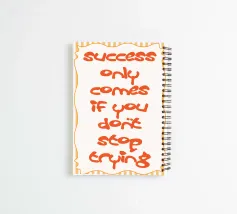 success
only
comes
if you
don't
stop
trying